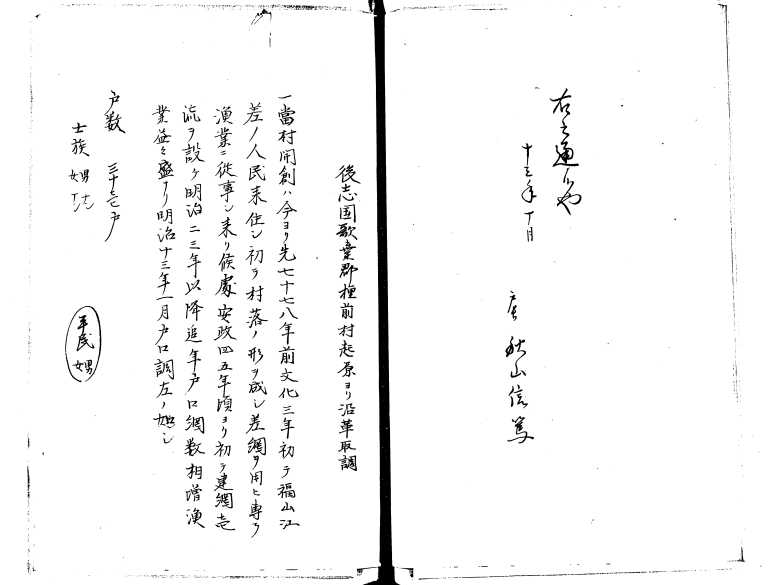 右之通候也
十三年十月
戸長 秋山信篤
後志国歌棄郡種前村起原ヨリ沿革取調
一當村開創ハ今ヨリ先七十七八年前文化三年初テ福山江
差ノ人民来住シ初テ村落ノ形ヲ成シ差網ヲ用ヒ専ラ
漁業ニ従事シ来リ候處安政四五年頃ヨリ初テ建網壱
流ヲ設ケ明治二三年以降追年戸口網数相増漁
業益々盛ナリ明治十三年一月戸口調左ノ如シ
戸数 三十壱戸
士族 男
平民 男